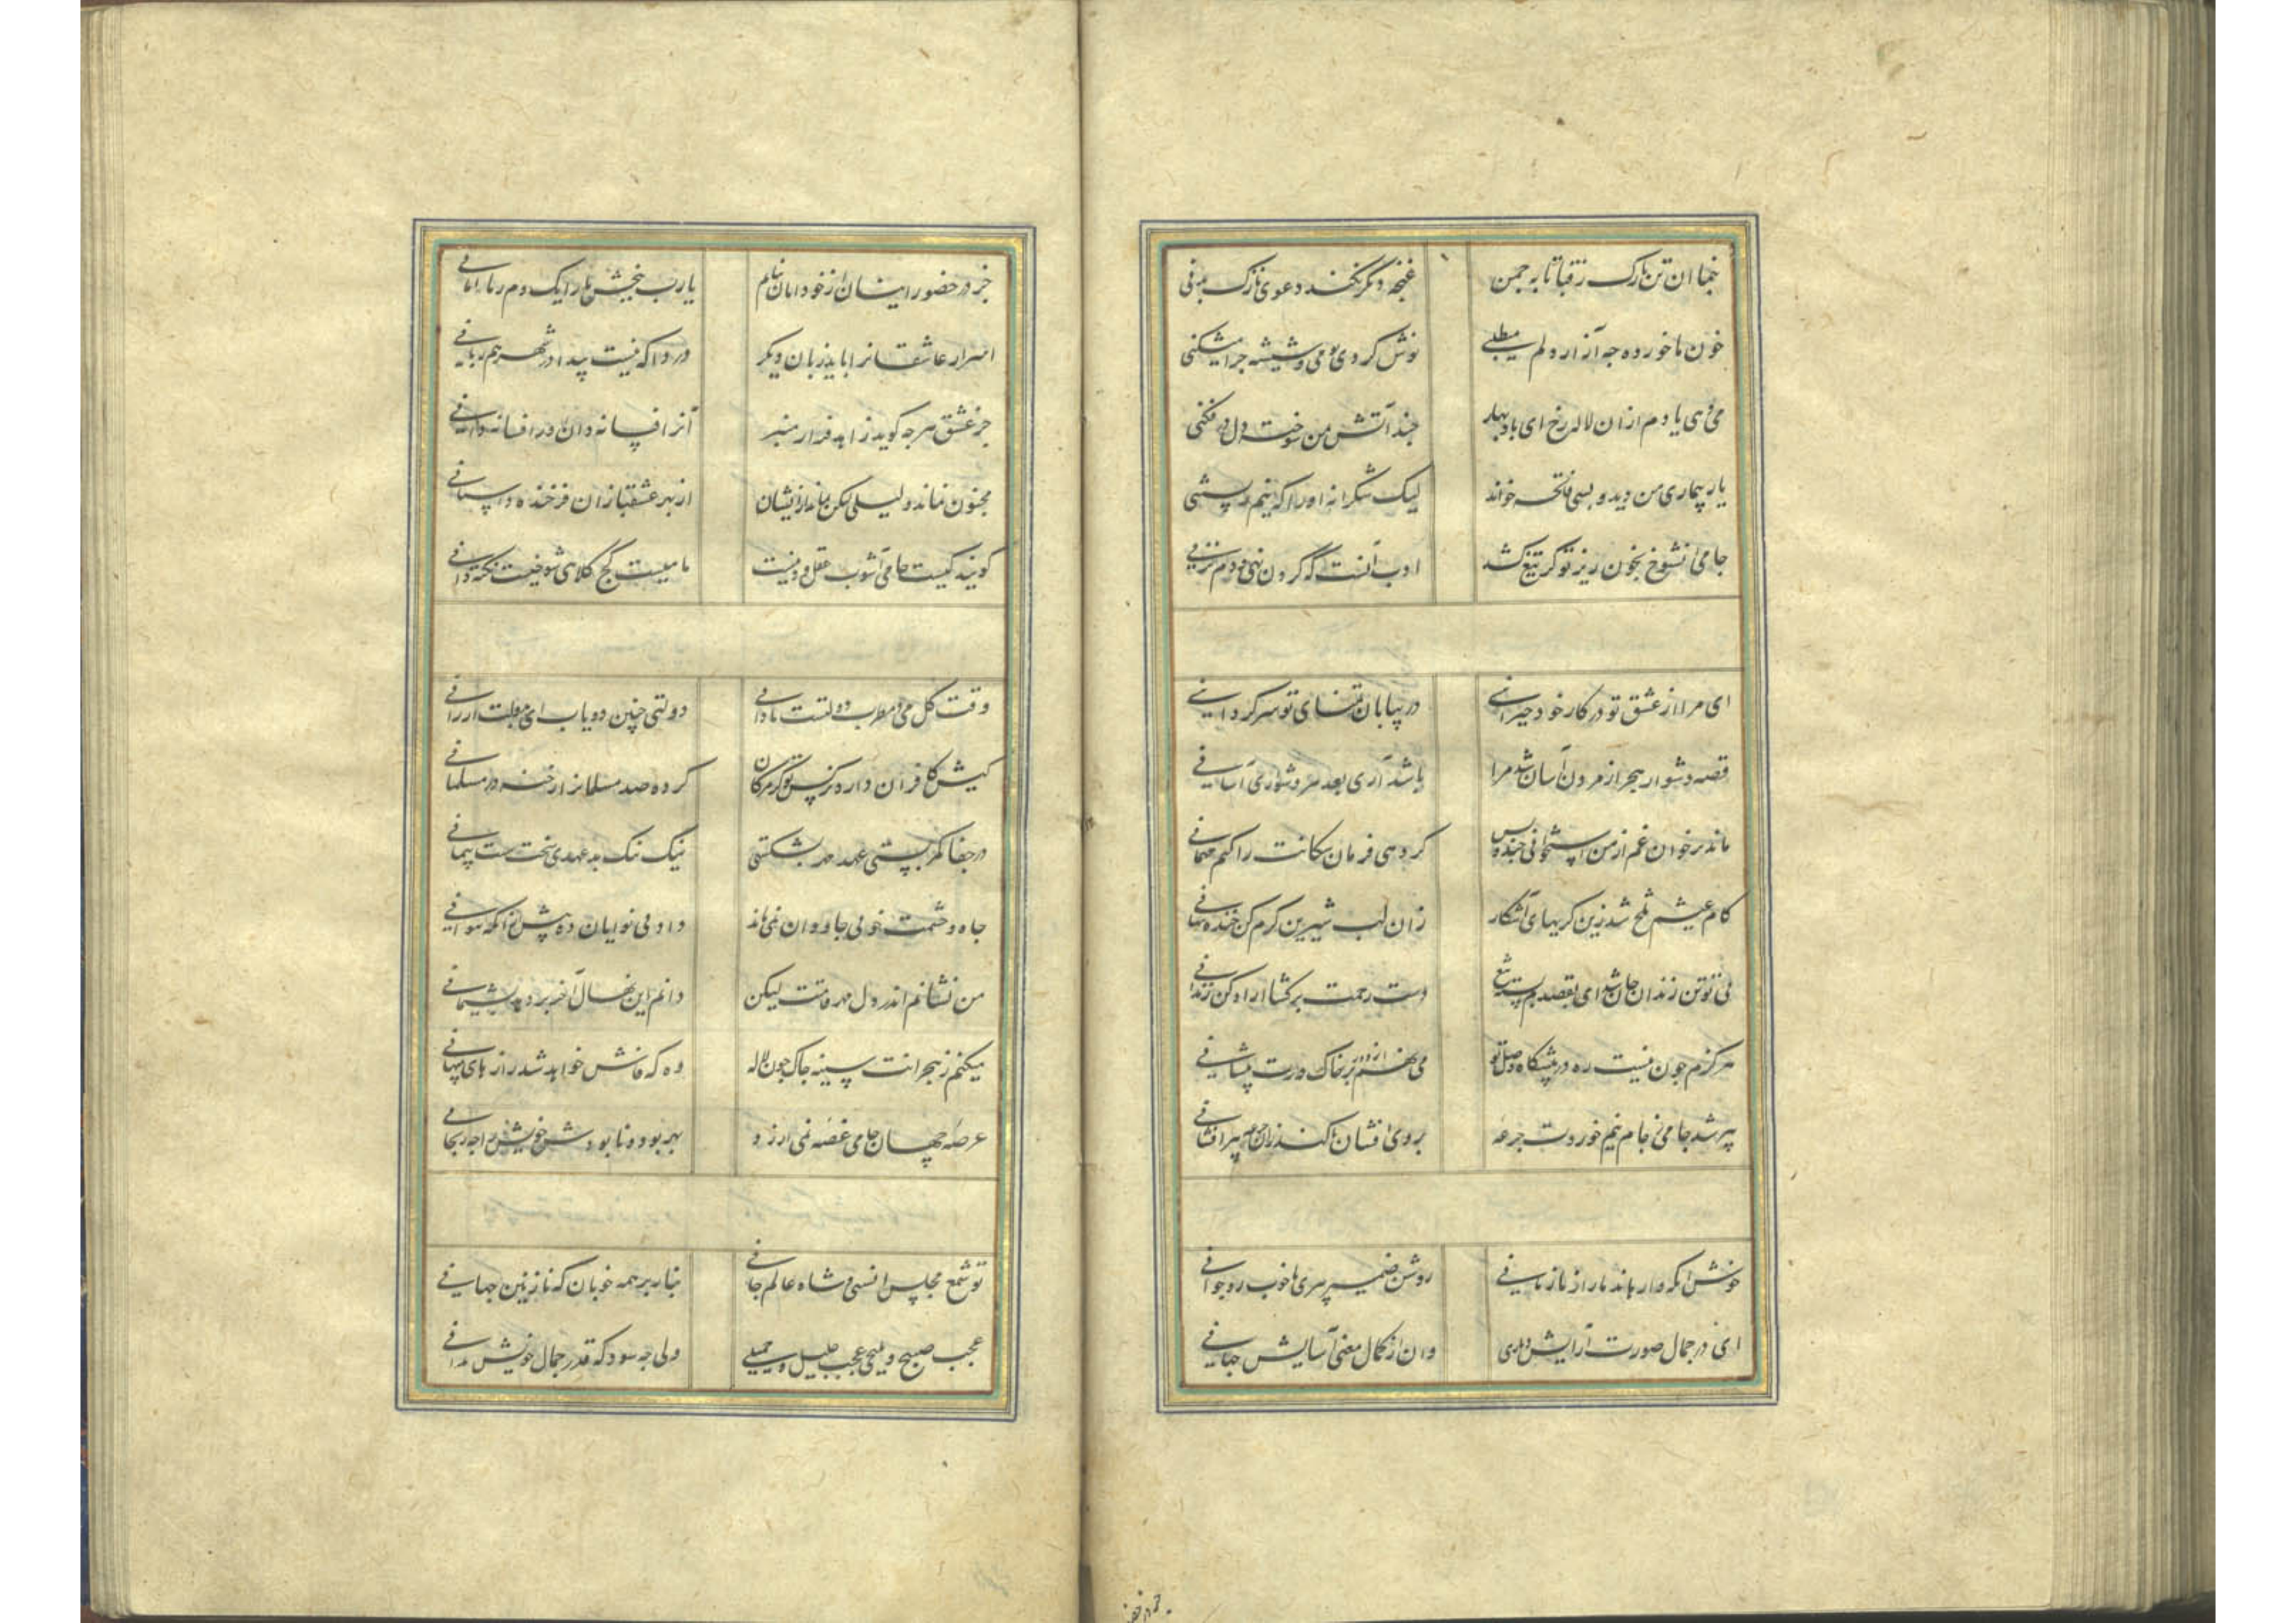 بنما ان تن نازک ز قبا تا به چمن غنچه دیگر نکند دعوی نازک بدنی
خون ما خورده چه آزار دلم میطلبی نوش کردی تو می و شیشه چرا میشکنی
می دهی یادم ازان لاله رخ ای باد بهار چند آتش من سوخته دل در فکنی
یار بیماری من دید و بسی فاتحه خواند لیک شکرانه اورا که نیم
جامی انشوخ بخون ریز تو گر تیغ کشد ادب آنست که گردن نهی و دم نزنی
ای مرا از عشق تو در کار خود حیرانی در بیابان تمنای تو سرگردانی
قصه دشوار هجر از مردن آسان شد مرا باشد آری بعد هر دشواری آسانی
ماند بر خوان غم از من استخوانی چند و بس گر دهی فرمان سگانت را کنم مهمانی
کام عیشم تلخ شد زین گریهای آشکار زان لب شیرین کرم کن خنده پنهانی
بی تو تن زندان جان شد ای بقصدم بسته تیغ دست رحمت برگشا ازاد کن زندانی
هر گزم چون نیست ره در پیشگاه وصل تو می نهم از دور بر خاک درت پیشانی
پیر شد جامی ز جام نیم خوردت جرعه بر وی افشان تا کند زان جرعه پیر افشانی
خوش انکه وا رهاند ما را ز ما زمانی روشن ضمیر پیری یا خوب رو جوانی
ای در جمال صورت آرایش دیاری وان از کمال معنی آسایش جهانی
جز در حضور اینسان از خود امان نیابم یارب ببخش ما را یک دم زما امانی
اسرار عاشقانرا باید زبان دیگر دردا که نیست پیدا در شهر هم زبانی
جز عشق هرچه گوید زاهد فراز منبر آنرا فسانه دان و اورا فسانه دانی
مجنون نماند و لیلی لیکن بماند ازیشان از بهر عشقبازان فرخنده داستانی
گویند کیست جامی آشوب عقل و دینت ما هیست کج کلاهی شوخیست نکته دانی
وقت گل می و مطرب دولتست تا دانی دولتی چنین دریاب ای بدولت ارزانی
کیش کافران دارد نرگس تو کز مژگان کرده صد مسلمانرا رخنه در مسلمانی
در جفا کمر بستی عهد مهر بشکستی نیک نیک بد عهدی سخت سست پیمانی
جاه و حشمت خوبی جاودان نمی ماند داد بی نوایان ده پیش از انکه نتوانی
من نشانم اندر دل مهر قامتت لیکن دانم این نهال آخر بر دهد پشیمانی
میکنم ز هجرانت سینه چاک چون لاله وه که فاش خواهد شد رازهای پنهانی
عرصه جهان جامی غصه نمی ارزد بهر بود و نابودش خویش را چه رنجانی
تو شمع مجلس انسی و شاه عالم جانی بناز بر همه خوبان که نازنین جهانی
عجب صبیح و ملیحی عجب جلیل و جمیلی ولی چه سود که قدر جمال خویش ندانی